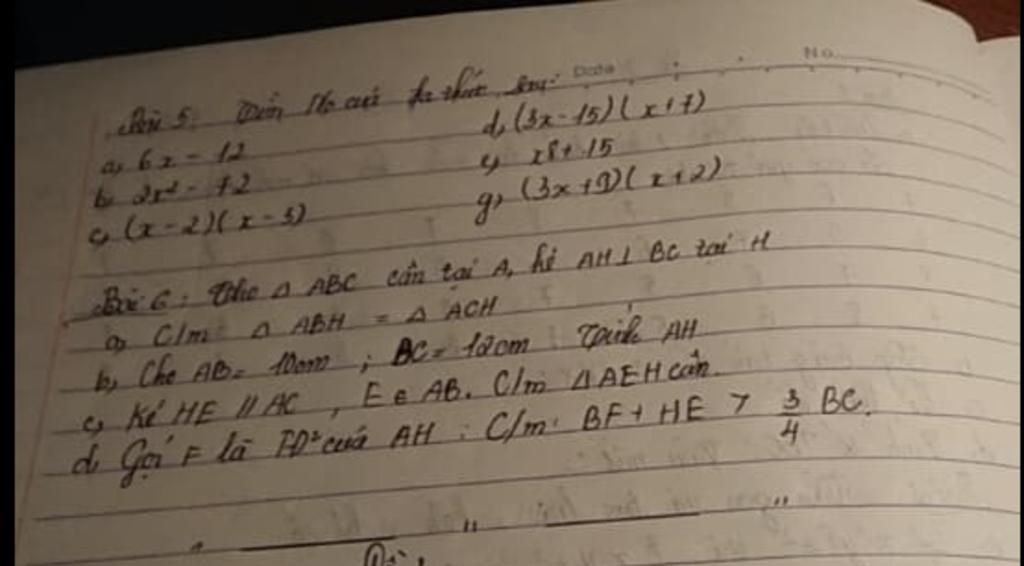 Date No
Bài 5: Tìm No của đa thức sau:
a, 6x - 12 d, (3x - 15)(x + 7)
b, 2x² - 72 e, x⁸ + 15
c, (x - 2)(x - 3) g, (3x + 9)(x + 2)
Bài 6: Cho Δ ABC cân tại A, kẻ AH ⊥ BC tại H
a, C/m Δ ABH = Δ ACH
b, Cho AB = 10cm ; BC = 12cm Tính AH
c, Kẻ HE // AC , E ∈ AB. C/m ΔAEH cân.
d, Gọi F là TĐ² của AH : C/m: BF + HE > 3/4 BC.